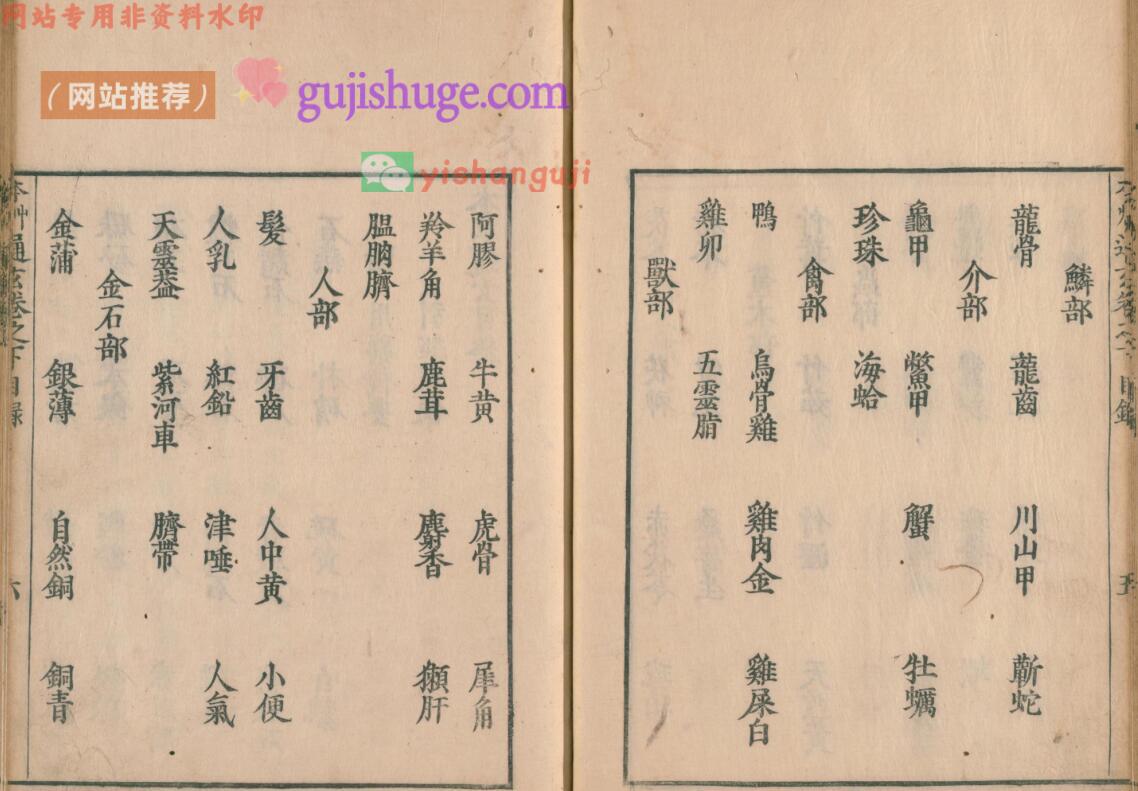 网站专用非资料水印
(网站推荐)
gujishuge.com
yishanguji
鱗部
龍骨 龍齒 川山甲 蘄蛇
介部
龜甲 鱉甲 蟹 牡蠣
珍珠 海蛤
禽部
鴨 烏骨雞 雞肉金 雞屎白
雞卵 五靈脂
獸部
阿膠 牛黃 虎骨 犀角
羚羊角 鹿茸 麝香 獺肝
膃肭臍
人部
髮 牙齒 人中黃 小便
人乳 紅鉛 津唾 人氣
天靈蓋 紫河車 臍帶
金石部
金蒲 銀薄 自然銅 銅青
本艸通玄卷之下目錄
六